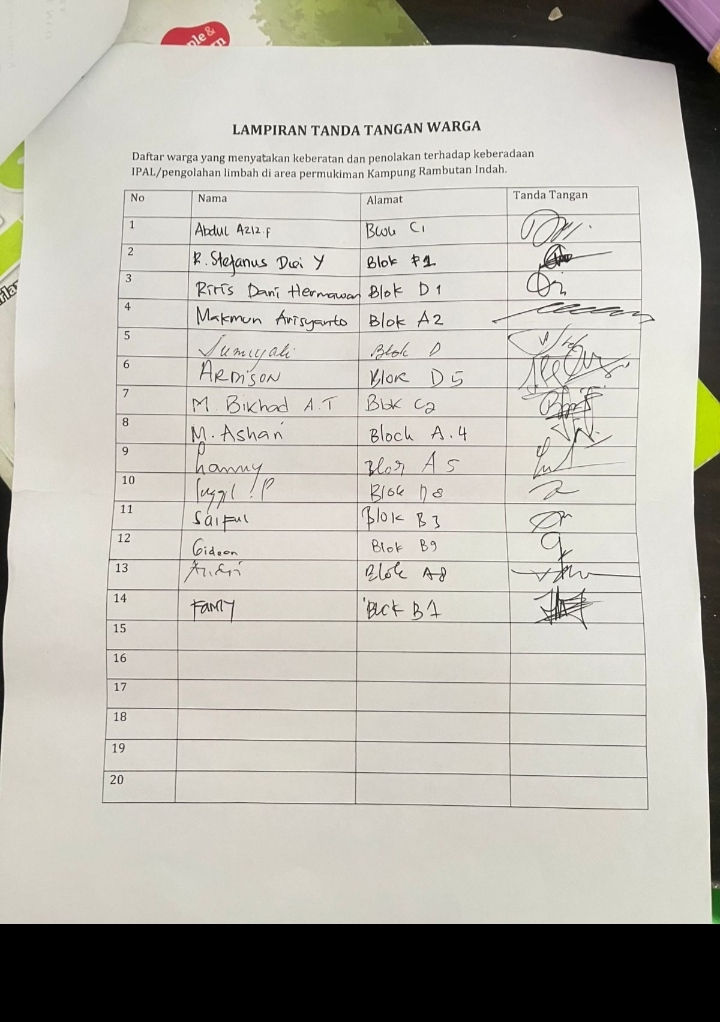 ple &
LAMPIRAN TANDA TANGAN WARGA
Daftar warga yang menyatakan keberatan dan penolakan terhadap keberadaan
IPAL/pengolahan limbah di area permukiman Kampung Rambutan Indah.
No Nama Alamat Tanda Tangan
1 Abdul Aziz.F C1
2 R. Stefanus Dwi Y Blok
3 Riris Dani Hermawan Blok D1
4 Makmun Arisyanto Blok A2
5 Blok D
6 ARDISON Blok D5
7 M. Bikhad A.T Blok C2
8 M. Ashari Block A.4
9 Blok A5
10 Blok D8
11 Saiful Blok B3
12 Gideon Blok B9
13 Blok A8
14 FAMLY Blok B1
15
16
17
18
19
20